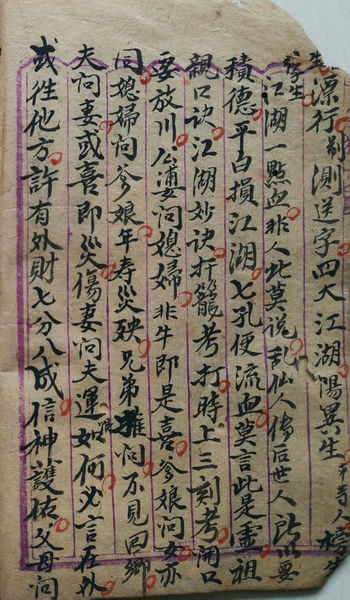 漂行別測送字四大江湖陽異生
江湖一點血非人此莫說乱仙人傳后世人所以要
積德平白損江湖七孔便流血莫言此是虛祖
親口诀江湖妙诀打籠考打時上三刻考開口
要放川公婆问媳婦非牛即是喜爹娘问女亦
同媳婦问爹娘年寿災殃兄弟推问不見回鄉
夫问妻或喜即災傷妻问夫運如何必言在外
或往他方許有外財七分八成信神護佑父母问